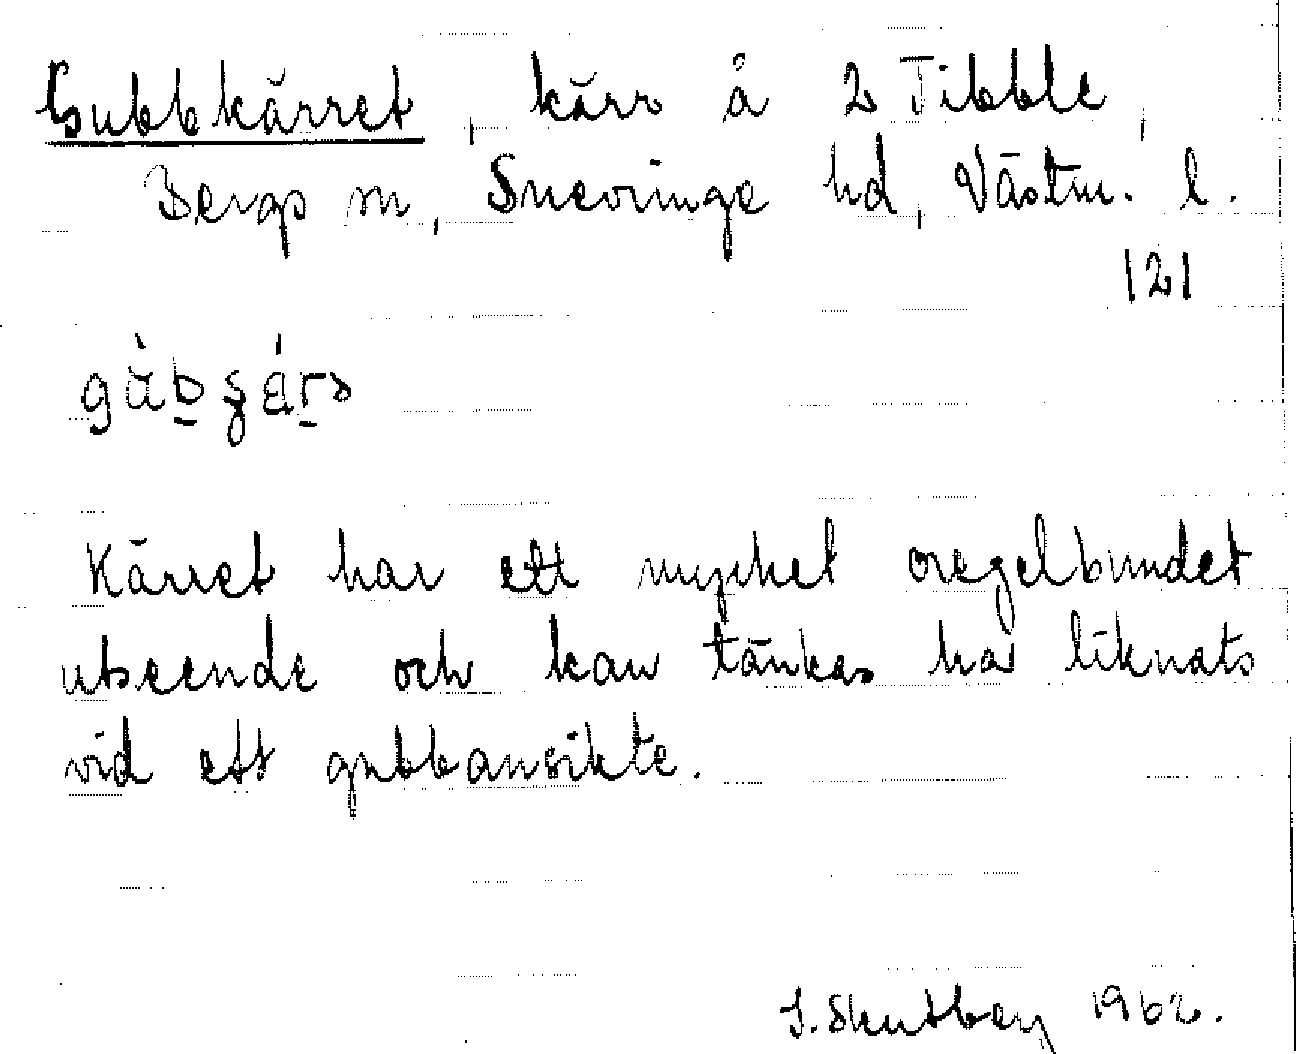 Gubbkärret, kärr å 2 Tibble,
Bergs sn, Snevringe hd, Västm. l.
121
Kärret har ett mycket oregelbundet
utseende och kan tänkas ha liknats
vid ett gubbansikte.
1962.